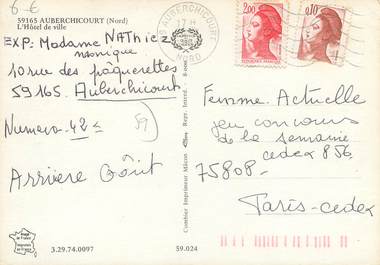 6 €
59165 AUBERCHICOURT (Nord)
L'Hôtel de ville
EXP: Madame NATHiez
monique
10 rue des pâquerettes
59165 Auberchicourt
Numero-42
59
Arriere Goût
AUBERCHICOURT
17 H
NORD
2,00
0,10
Femme Actuelle
jeu concours
de la semaine
cedex 856
75808-
Paris-cedex
Combier Imprimeur Mâcon
Repr. Interd.
3.29.74.0097
59.024